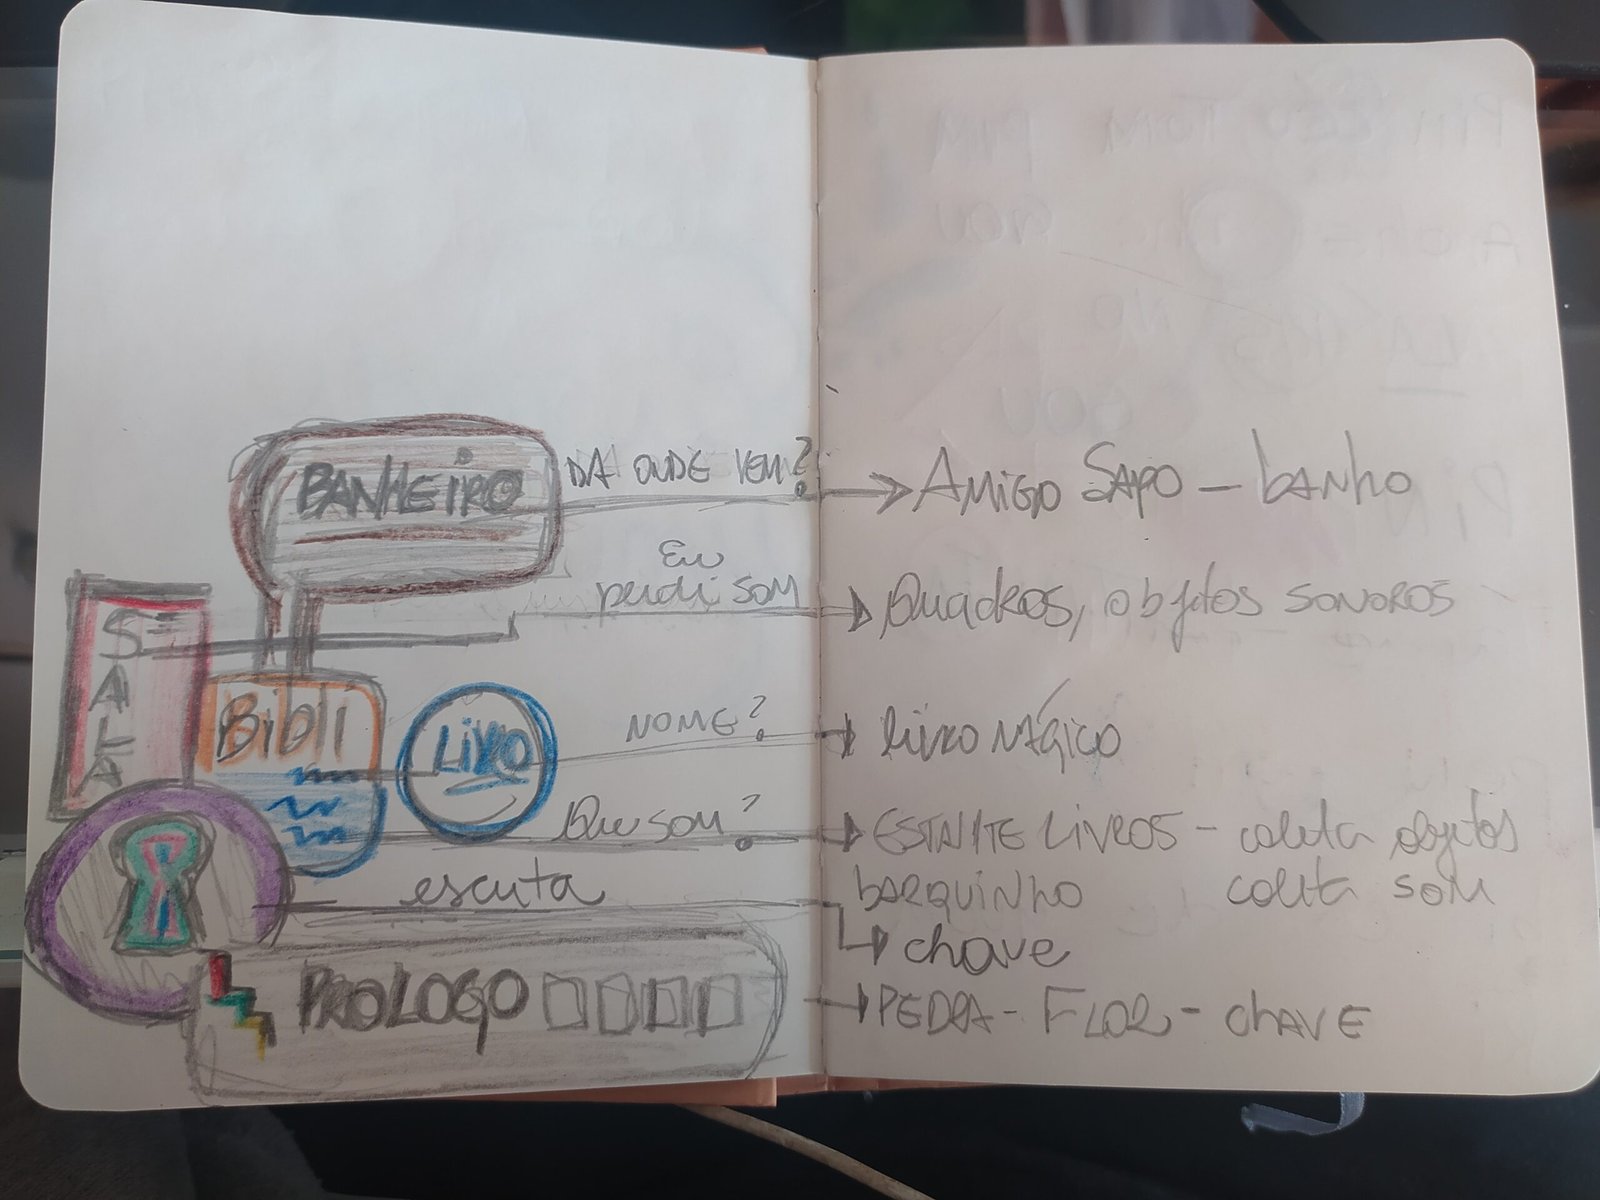 BANHEIRO DA ONDE VEM? → AMIGO SAPO - BANHO
Eu
perdi SOM → Quadros, objetos SONOROS
SALA
Bibli
LIVRO
NOME? → livro MÁGICO
Que som? → ESTANTE LIVROS - coleta objetos
BARQUINHO coleta som
escuta
→ chave
PROLOGO → PEDRA - FLOR - CHAVE